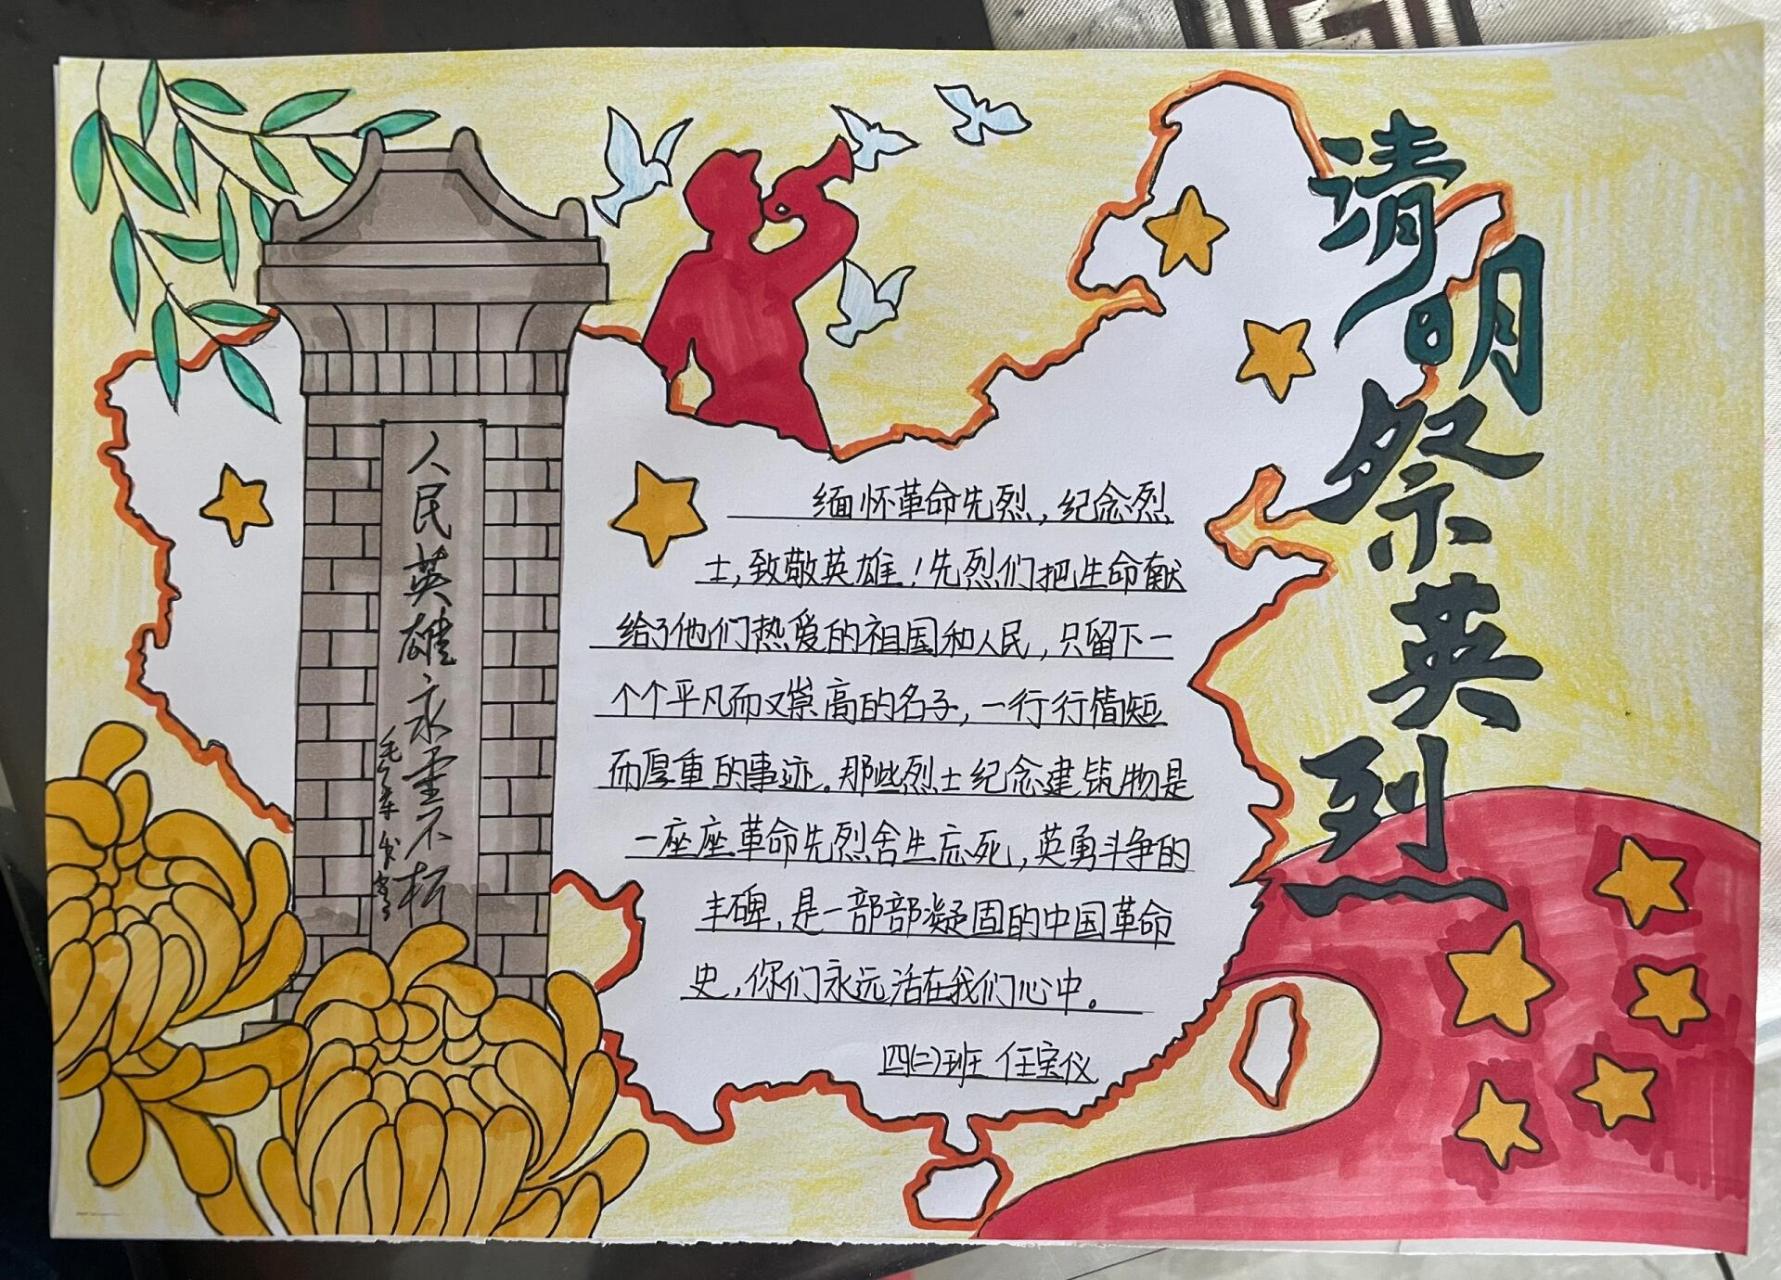 清明祭英烈
人民英雄永垂不朽
缅怀革命先烈，纪念烈
士，致敬英雄！先烈们把生命献
给了他们热爱的祖国和人民，只留下一
个个平凡而又崇高的名子，一行行简短
而厚重的事迹。那些烈士纪念建筑物是
一座座革命先烈舍生忘死，英勇斗争的
丰碑，是一部部凝固的中国革命
史，你们永远活在我们心中。
四(二)班 任宝仪